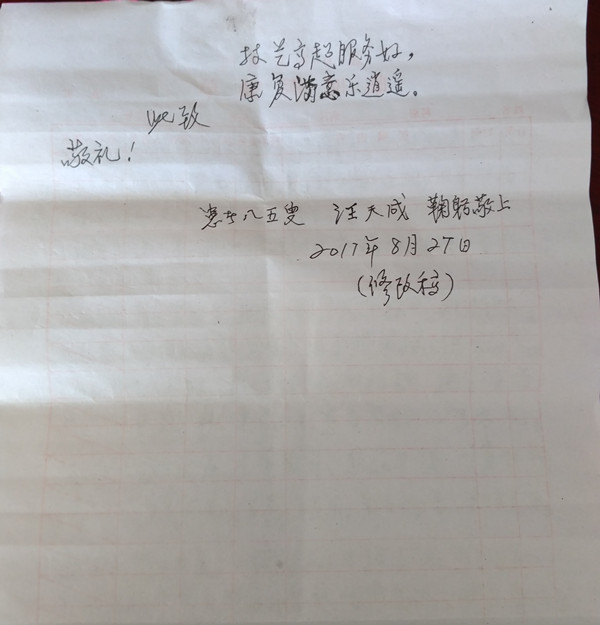 技艺高超服务好，
康复满意乐逍遥。
此致
敬礼！
患者八五叟 汪天成 鞠躬敬上
2017年8月27日
（修改稿）